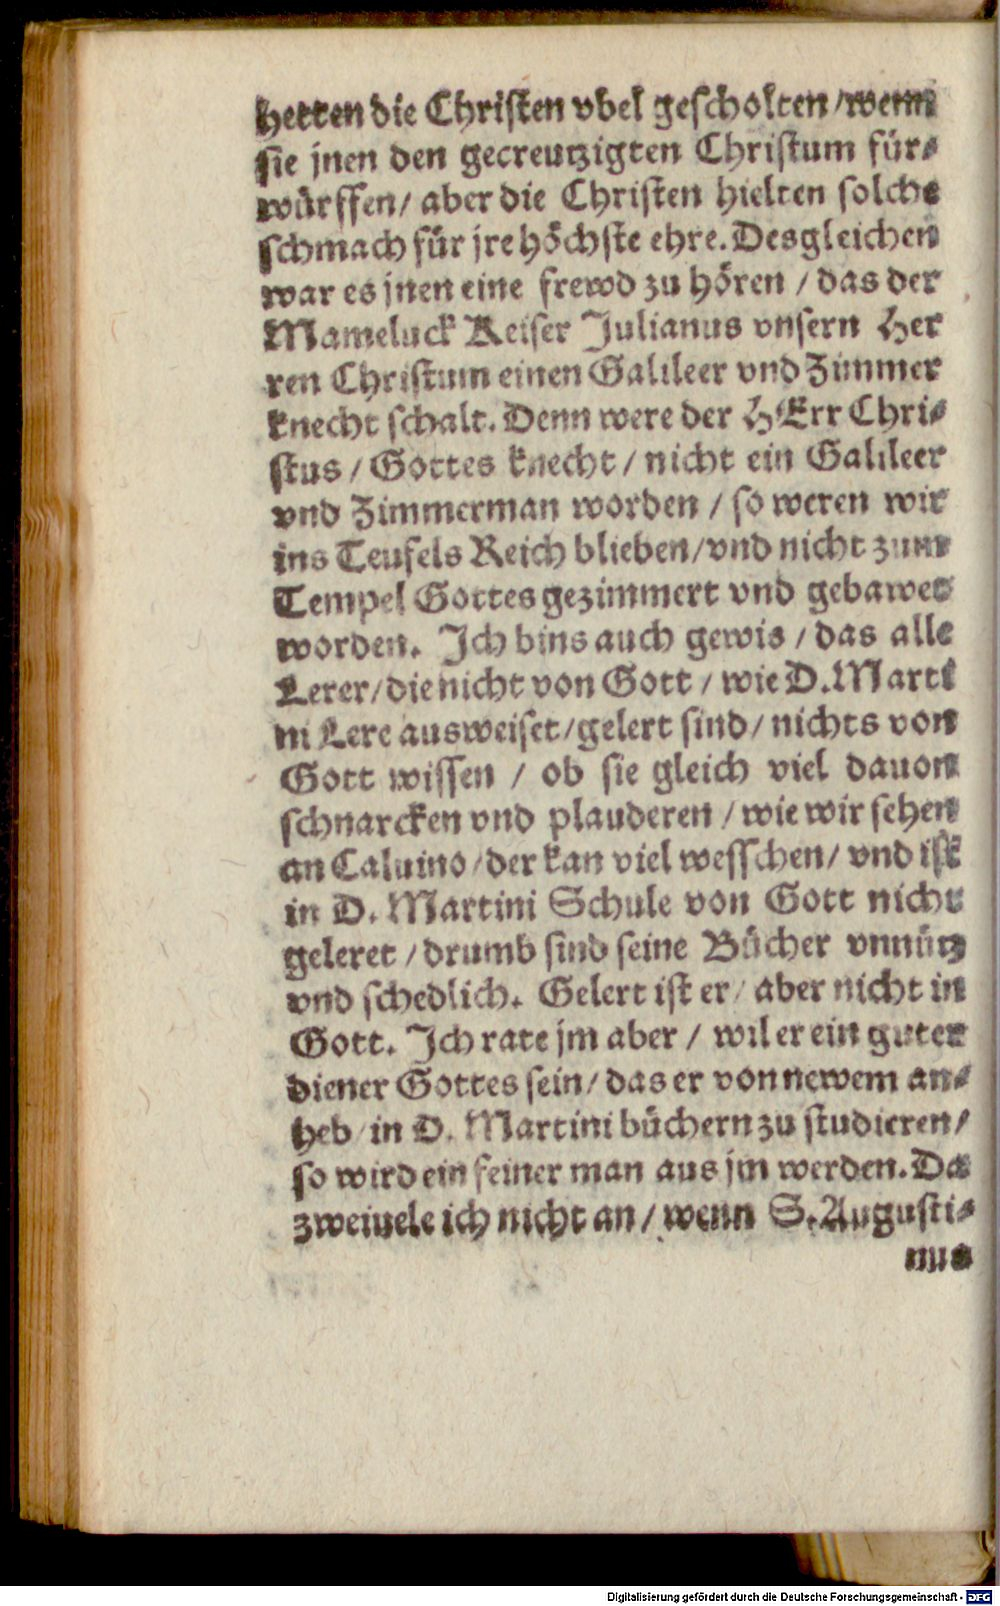 hetten die Christen vbel gescholten / wenn
sie jnen den gecreutzigten Christum für⸗
würffen / aber die Christen hielten solche
schmach für jre höchste ehre. Desgleichen
war es jnen eine frewd zu hören / das der
Mameluck Keiser Julianus vnsern Her
ren Christum einen Galileer vnd Zimmer
knecht schalt. Denn were der HErr Chri⸗
stus / Gottes knecht / nicht ein Galileer
vnd Zimmerman worden / so weren wir
ins Teufels Reich blieben / vnd nicht zum
Tempel Gottes gezimmert vnd gebawet
worden. Ich bins auch gewis / das alle
Lerer / die nicht von Gott / wie D. Marti
ni Lere ausweiset / gelert sind / nichts von
Gott wissen / ob sie gleich viel dauon
schnarcken vnd plauderen / wie wir sehen
an Caluino / der kan viel wesschen / vnd ist
in D. Martini Schule von Gott nicht
geleret / drumb sind seine Bücher vnnütz
vnd schedlich. Gelert ist er / aber nicht in
Gott. Ich rate jm aber / wil er ein guter
diener Gottes sein / das er von newem an⸗
heb / in D. Martini büchern zu studieren /
so wird ein feiner man aus jm werden. Da
zweiuele ich nicht an / wenn S. Augusti⸗
nus
Digitalisierung gefördert durch die Deutsche Forschungsgemeinschaft - DFG